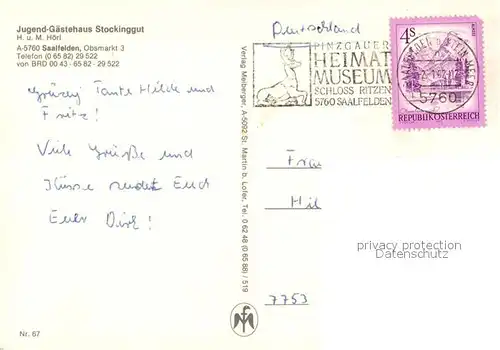 Jugend-Gästehaus Stockinggut
H. u. M. Hörl
A-5760 Saalfelden, Obsmarkt 3
Telefon (0 65 82) 29 522
von BRD 00 43 · 65 82 - 29 522
Tante Hilde und
Fritz!
Viele Grüße und
Küsse sendet Euch
Euer Dirk!
Nr. 67
Verlag Meiberger, A-5092 St. Martin b. Lofer, Tel. 0 62 48 (0 65 88) / 519
Deutschland
PINZGAUER
HEIMAT
MUSEUM
SCHLOSS RITZEN
5760 SAALFELDEN
4S
5760
REPUBLIK ÖSTERREICH
Frau
Hil
7753
privacy protection
watermark
Ansichtskartenversand.com